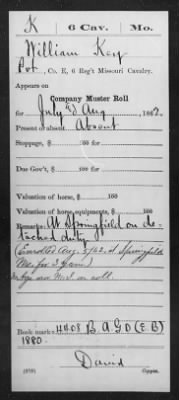 K 6 Cav. Mo.
William Key
Pvt., Co. E, 6 Reg't Missouri Cavalry.
Appears on
Company Muster Roll
for July & Aug, 1862.
Present or absent Absent
Stoppage, $ 100 for
Due Gov't, $ 100 for
Valuation of horse, $ 100
Valuation of horse equipments, $ 100
Remarks: At Springfield on de-
tached duty
(Enrolled Aug. 5/62, at Springfield
Mo. for 3 years)
no on roll.
Book mark: R. & P. (E. B.)
1880.
David
(358) Copyist.